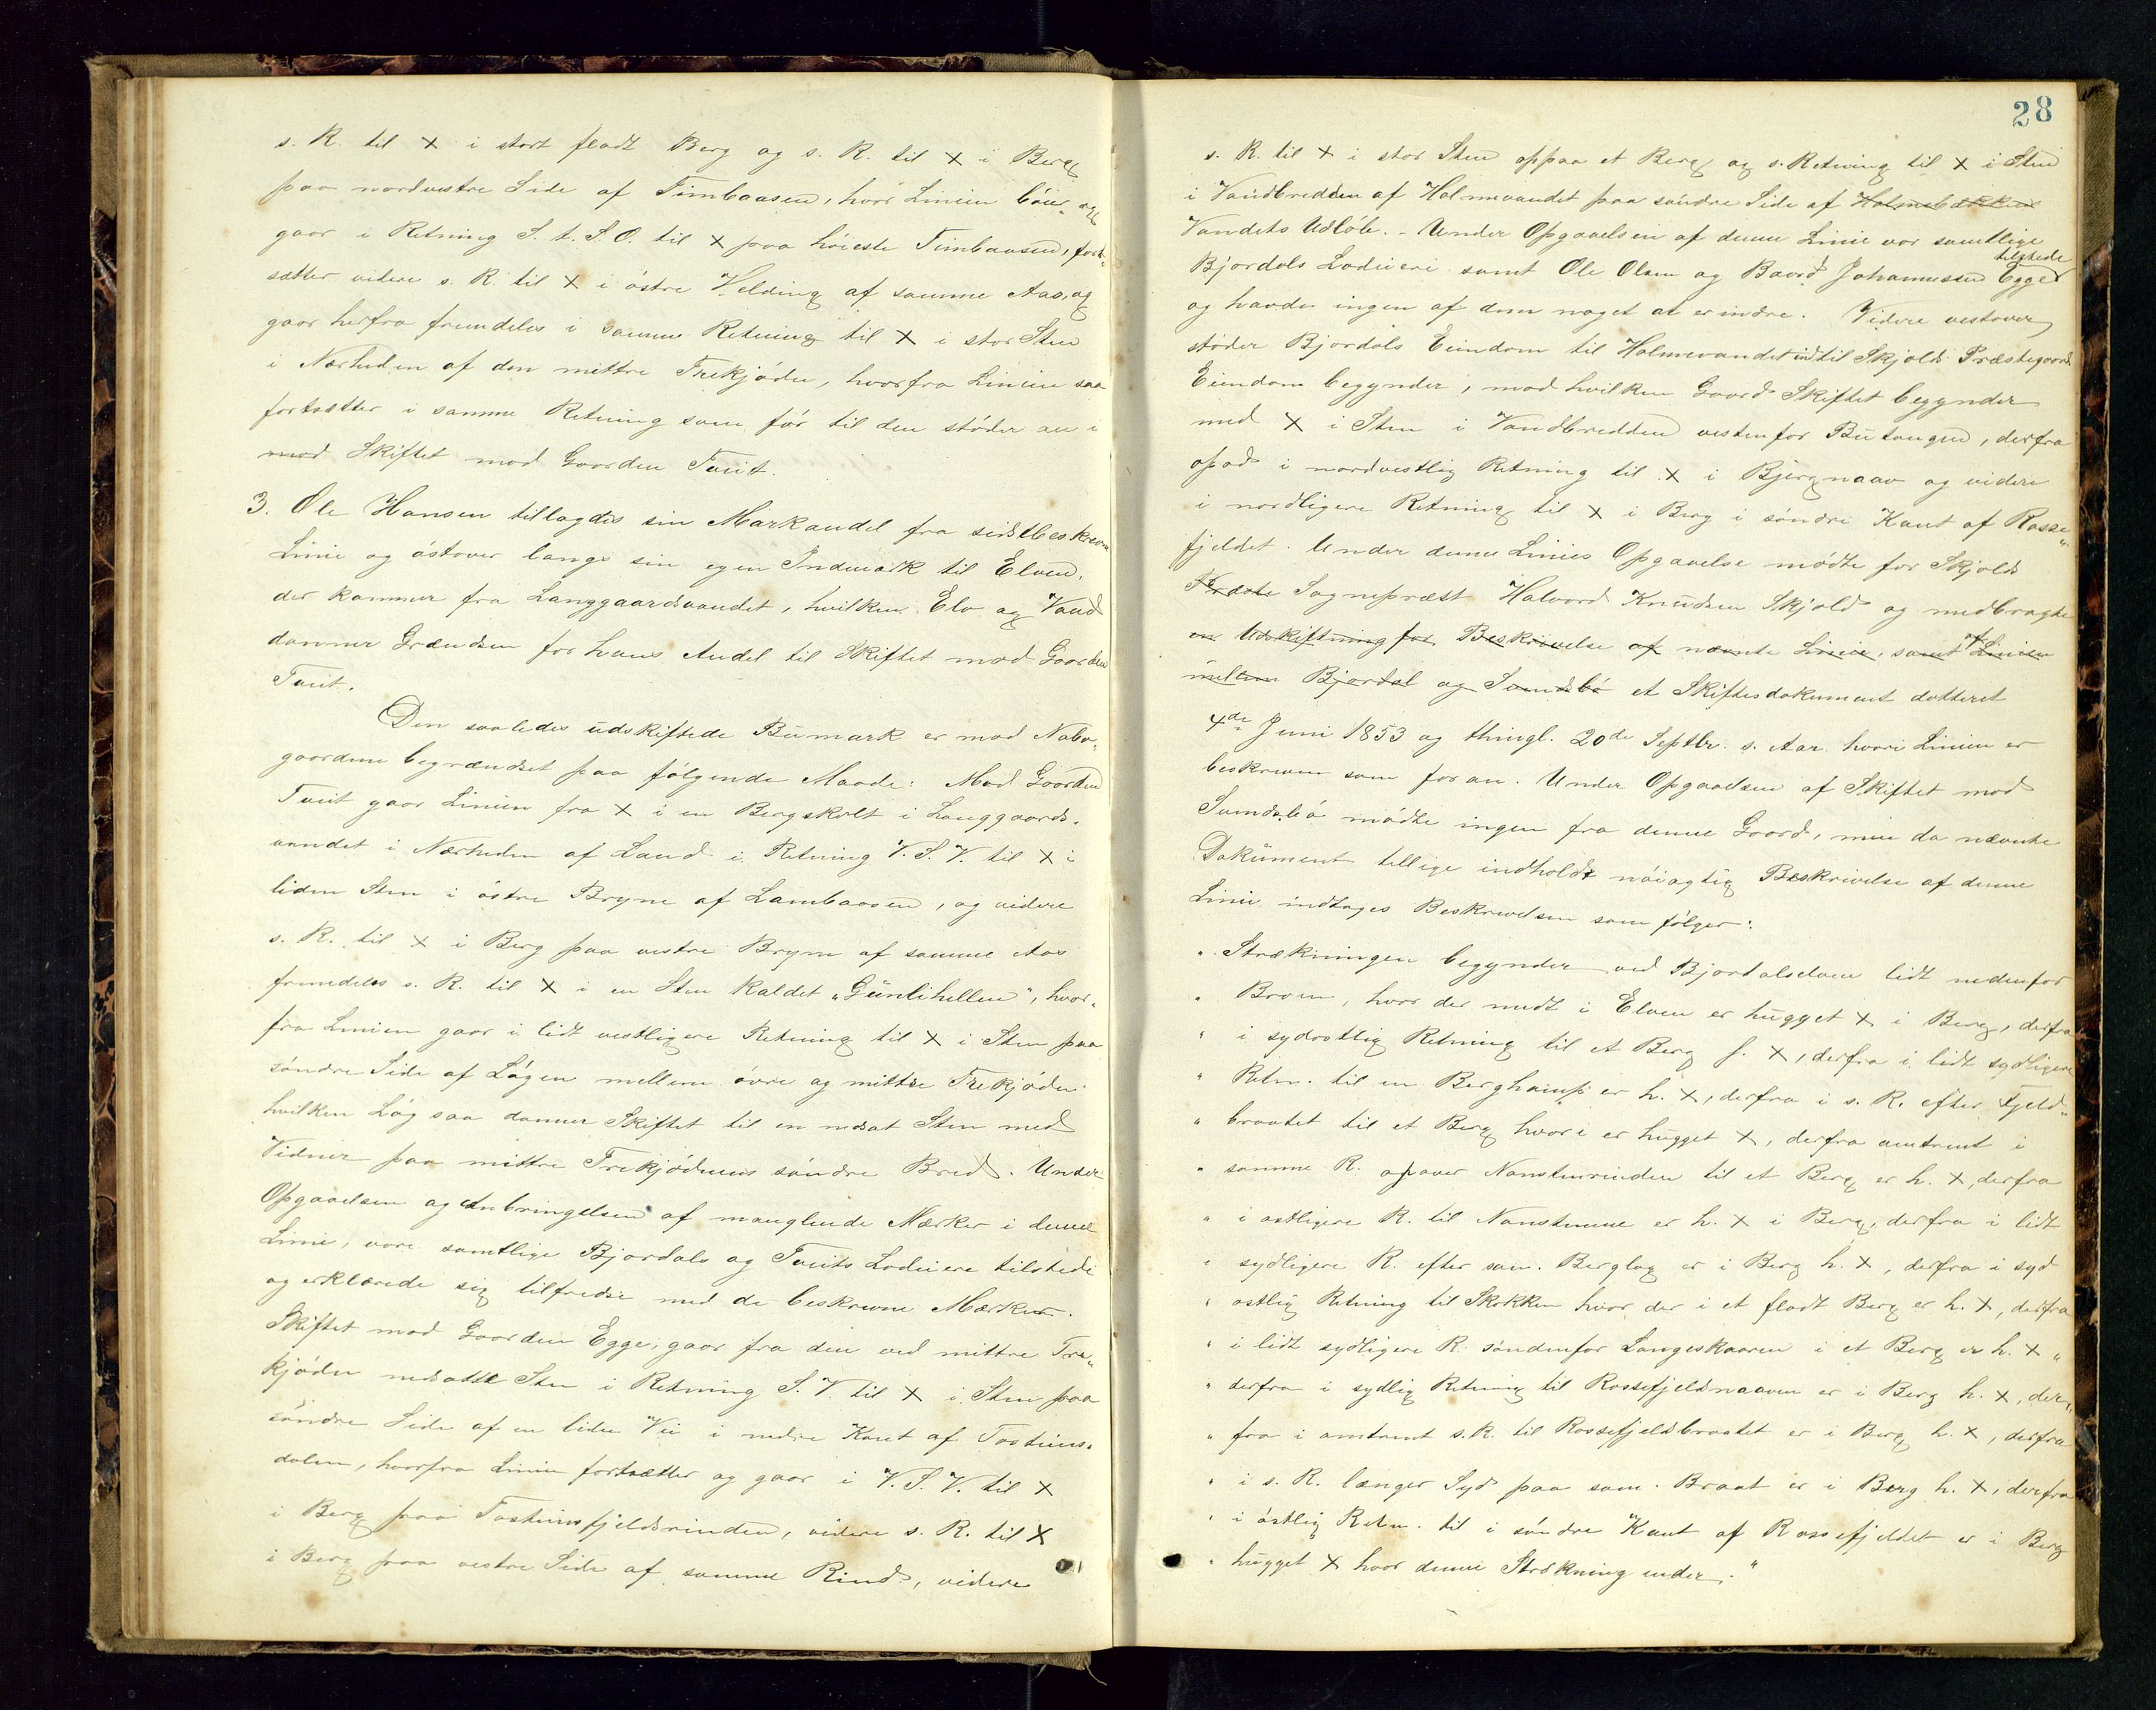 s. R. til X i stort fladt Berg og s. R. til X i Berg
paa nordvestre Side af Timbaasen, hvor Linien bøier og
gaar i Retning S. t. S. O. til X paa høieste Timbaasen, fort-
sætter videre s. R. til X i østre Helding af samme Aas, og
gaar herfra fremdeles i samme Retning til X i stor Sten
i Nærheden af den mittre Trekjødn, hvorfra Linien saa
fortsætter i samme Retning som før til den støder an i
mod Skiftet mod Gaarden Tveit.
3. Ole Hansen tillagdes sin Markandel fra sidstbeskrevne
Linie og østover langs sin egen Indmark til Elven,
der kommer fra Langgaardsvandet, hvilken Elv og Vand
danner Grændsen for hans Andel til Skiftet mod Gaarden
Tveit.
Den saaledes udskiftede Bumark er mod Nabo-
gaardene begrændset paa følgende Maade: Mod Gaarden
Tveit gaar Linien fra X i en Bergskolt i Langgaards-
vandet i Nærheden af Land i Retning V. S. V. til X i
liden Sten i østre Bryne af Lambaasen, og videre
s. R. til X i Berg paa vestre Bryne af samme Aas
fremdeles s. R. til X i en Sten kaldet "Guntihellen", hvor-
fra Linien gaar i lidt vestligere Retning til X i Sten paa
søndre Side af Løgen mellem øvre og mittre Trekjødn
hvilken Løg saa danner Skiftet til en nedsat Sten med
Vidner paa mittre Trekjødnens søndre Bred. Under
Opgaaelsen og Anbringelsen af manglende Mærker i denne
Linie, vare samtlige Bjordals og Tveits Lodeiere tilstede
og erklærede sig tilfredse med de beskrevne Mærker.
Skiftet mod Gaarden Egge, gaar fra den ved mittre Tre-
kjødn nedsatte Sten i Retning S. V. til X i Sten paa
søndre Side af en liden Vei i nedre Kant af Tosteins-
dalen, hvorfra Linien fortsætter og gaar i V. S. V. til X
i Berg paa Tosteinsfjeldsrinden, videre s. R. til X
i Berg paa vestre Side af samme Rind, videre
28
s. R. til X i stor Sten oppaa et Berg og s. Retning til X i Sten
i Vandbredden af Holmevandet paa søndre Side af Holmebækken
Vandets Udløb. - Under Opgaaelsen af denne Linie var samtlige
Bjordals Lodeiere samt Ole Olsen og Baard Johannessen Egge tilstede
og havde ingen af dem noget at erindre. Videre vestover
støder Bjordals Eiendom til Holmevandet indtil Skjolds Præstegaards
Eiendom begynder, mod hvilken Gaard Skiftet begynder
med X i Sten i Vandbredden vestenfor Butangen, derfra
opad i nordvestlig Retning til X i Bjergnaav og videre
i nordligere Retning til X i Berg i søndre Kant af Rosse-
fjeldet. Under denne Linies Opgaaelse mødte for Skjolds
Præste Sognepræst Halvord Knudsen Skjold og medbragte
en Udskiftning for Beskrivelse af nævnte Linie, samt af Linien
mellem Bjordal og Sundsbø et Skiftesdokument datteret
4de Juni 1853 og thingl. 20de Septbr. s. Aar. hvori Linien er
beskreven som foran. Under Opgaaelsen af Skiftet mod
Sundsbø mødte ingen fra denne Gaard, men da nævnte
Dokument tillige indholdt nøiagtig Beskrivelse af denne
Linie indtages Beskrivelsen som følger:
" Strækningen begynder ved Bjordalselven lidt nedenfor
" Broen, hvor der midt i Elven er hugget X i Berg, derfra
" i sydostlig Retning til et Berg h. X, derfra i lidt sydligere
" Retn. til en Berghamp er h. X, derfra i s. R. efter Fjeld-
" braatet til et Berg hvori er hugget X, derfra omtrent i
" samme R. opover Nonstenrinden til et Berg er h. X, derfra
" i ostligere R. til Nonstenene er h. X i Berg, derfra i lidt
" sydligere R. efter sam. Berglag er i Berg h. X, derfra i syd
" ostlig Retning til Skokken hvor der i et fladt Berg er h. X, derfra
" i lidt sydligere R. søndenfor Langeskaaren i et Berg er h. X "
" derfra i sydlig Retning til Rossefjeldnaaven er i Berg h. X, der-
" fra i omtrent s. R. til Rossefjeldbraatet er i Berg h. X, derfra
" i s. R. længer Syd paa sam. Braat er i Berg h. X, derfra
" i østlig Retn. til i søndre Kant af Rossefjeldet er i Berg
" hugget X hvor denne Strækning ender."